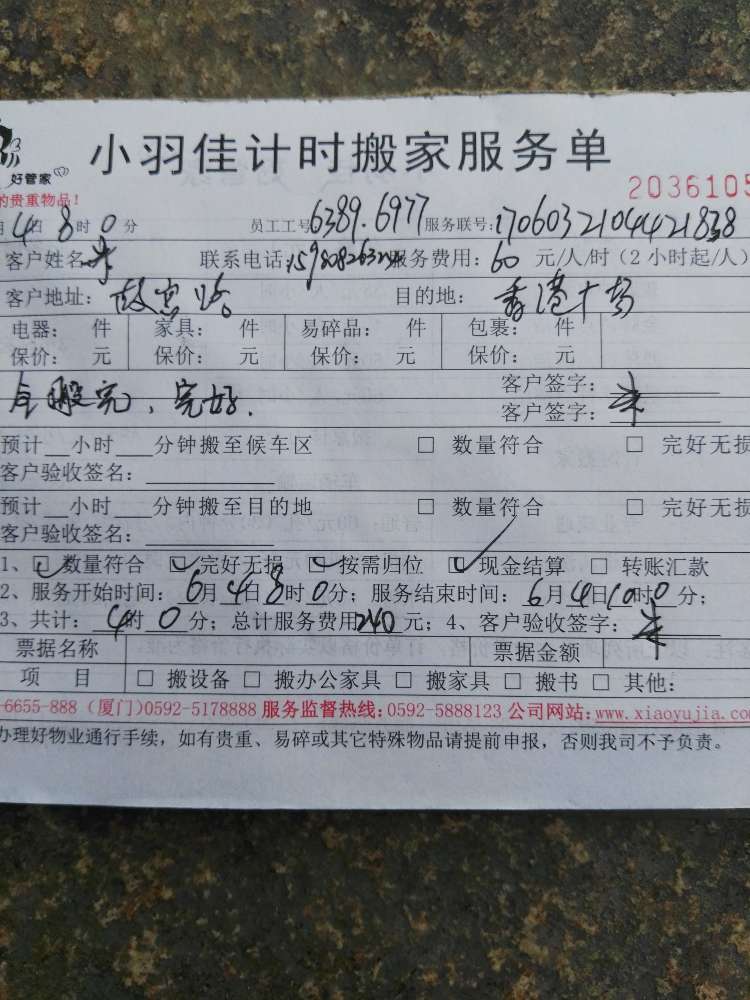 好管家
小羽佳计时搬家服务单
的贵重物品!
2036105
4日8时0分 员工工号6389.6977 服务联号:17060321044421838
客户姓名 联系电话: 服务费用:60元/人/时(2小时起/人)
客户地址:故宫路 目的地:香港广场
电器: 件 家具: 件 易碎品: 件 包裹: 件
保价: 元 保价: 元 保价: 元 保价: 元
客户签字:
全搬完、完好. 客户签字:朱
预计__小时___分钟搬至候车区 □ 数量符合 □ 完好无损
客户验收签名:
预计__小时___分钟搬至目的地 □ 数量符合 □ 完好无损
客户验收签名:
1、☑数量符合 ☑完好无损 ☑按需归位 ☑现金结算 □ 转账汇款
2、服务开始时间:6月4日8时0分;服务结束时间:6月4日10时0分;
3、共计:4时0分;总计服务费用240元;4、客户验收签字:朱
票据名称 票据金额
项 目 □ 搬设备 □ 搬办公家具 □ 搬家具 □ 搬书 □ 其他:
6655-888 (厦门)0592-5178888 服务监督热线:0592-5888123 公司网站:www.xiaoyujia.com
办理好物业通行手续,如有贵重、易碎或其它特殊物品请提前申报,否则我司不予负责。